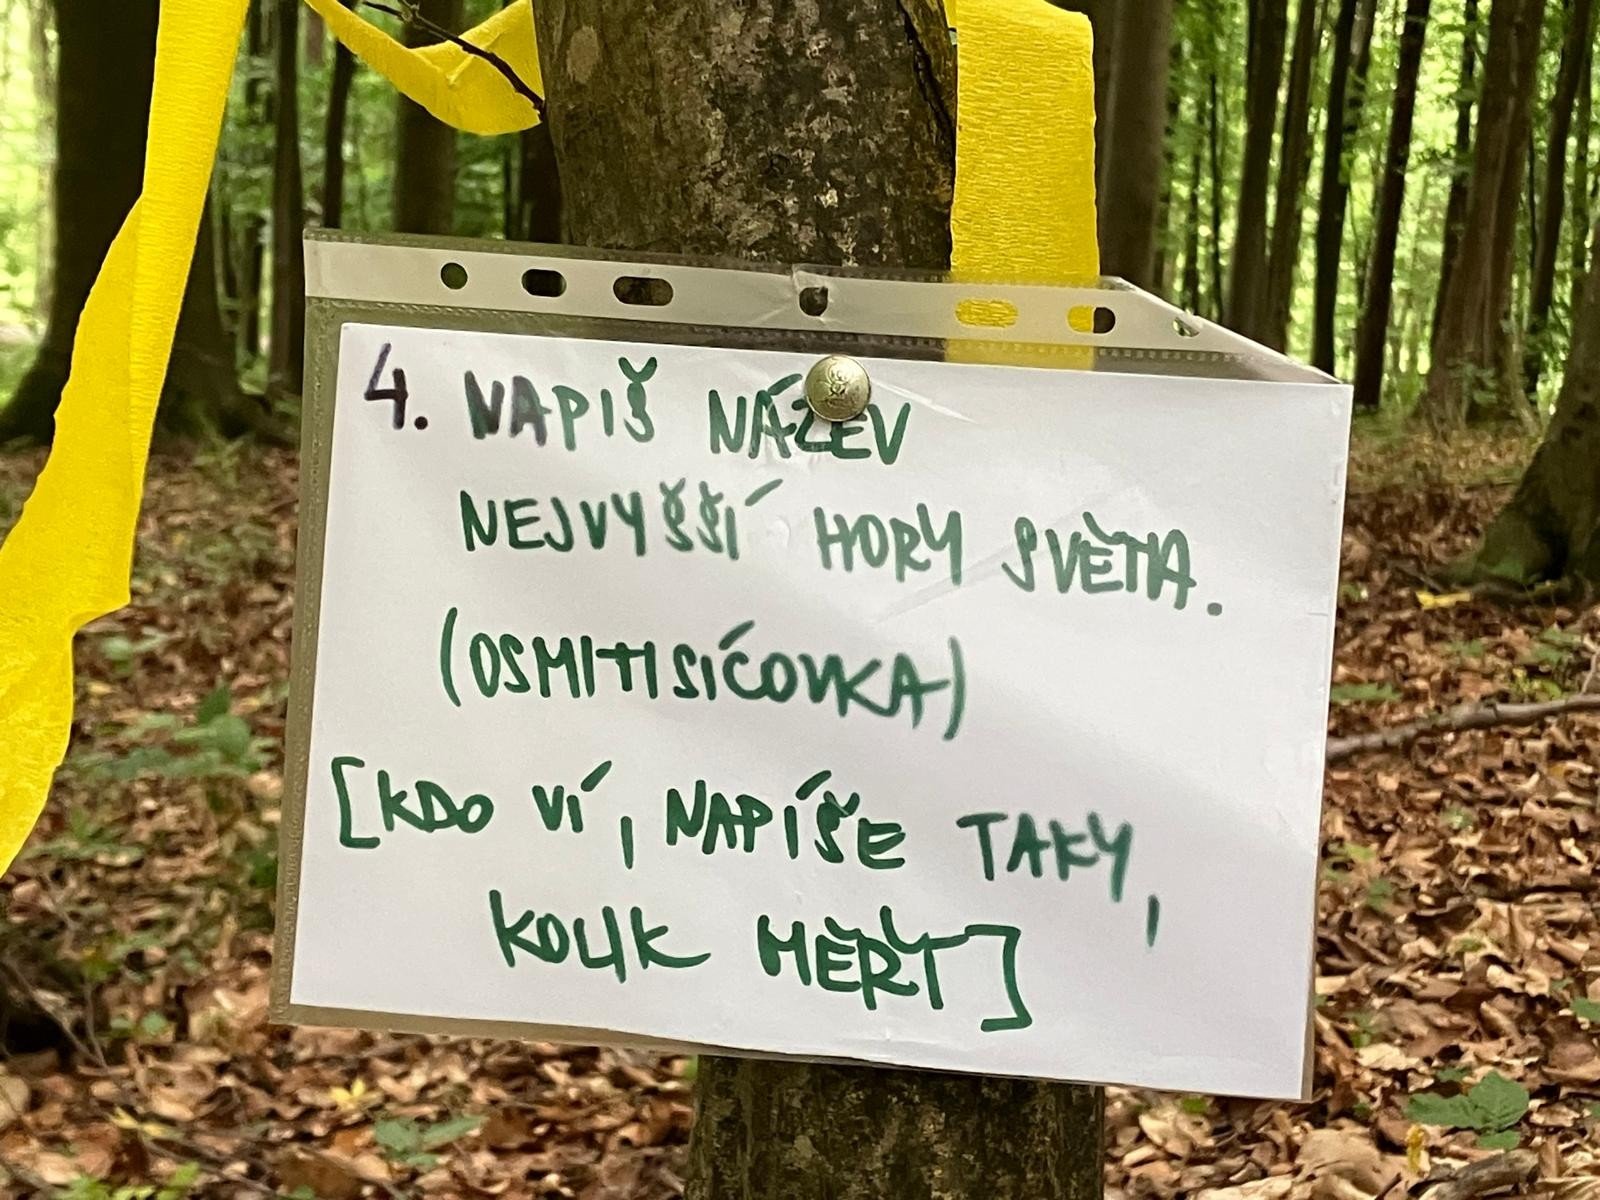 4. NAPIŠ NÁZEV
NEJVYŠŠÍ HORY SVĚTA.
(OSMITISÍCOVKA)
[KDO VÍ, NAPÍŠE TAKY,
KOLIK MĚŘÍ]